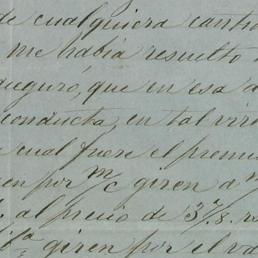 de cualquiera canti
me habia resuelto
aseguró, que en esa
conducta, en tal vir
cual fuere el premi
por m/c giren a
al precio de 37/8
giren por el va